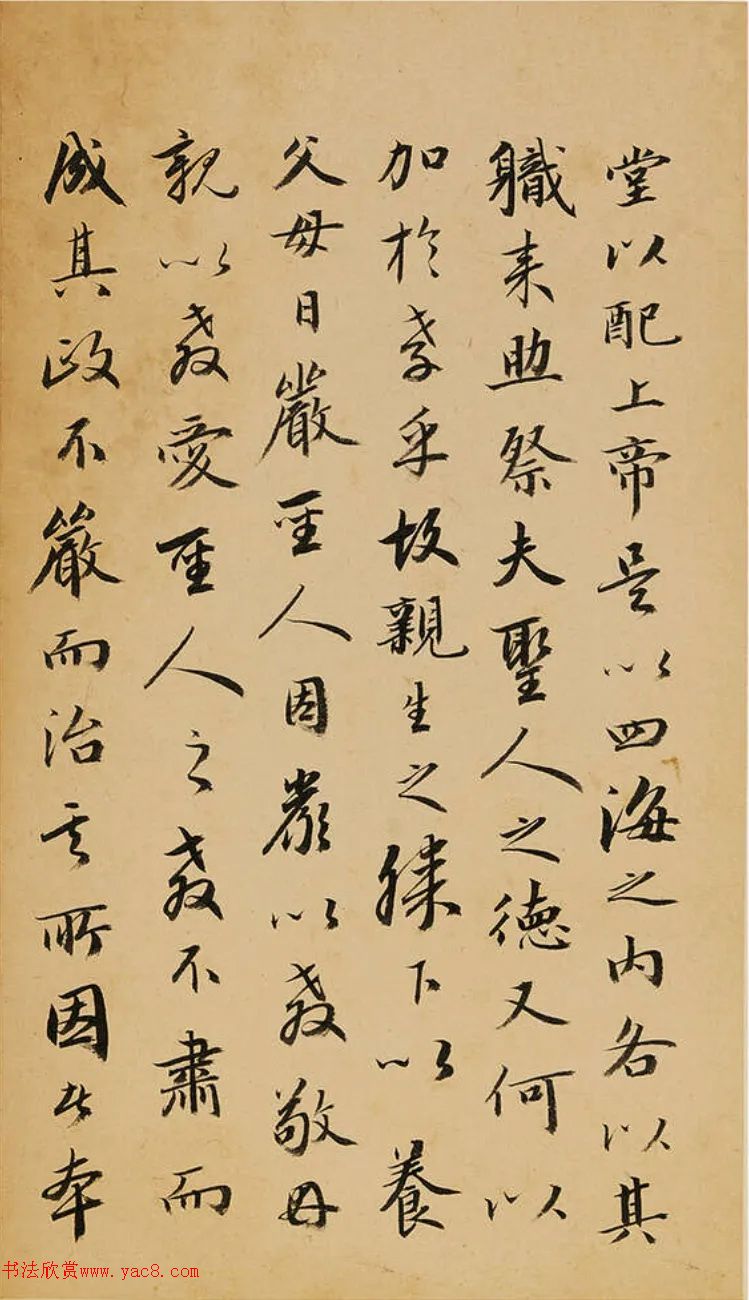 堂以配上帝是以四海之内各以其
職来助祭夫聖人之德又何以
加於孝乎故親生之膝下以養
父母日嚴聖人因嚴以教敬因
親以教愛聖人之教不肅而
成其政不嚴而治其所因者本
书法欣赏www.yac8.com